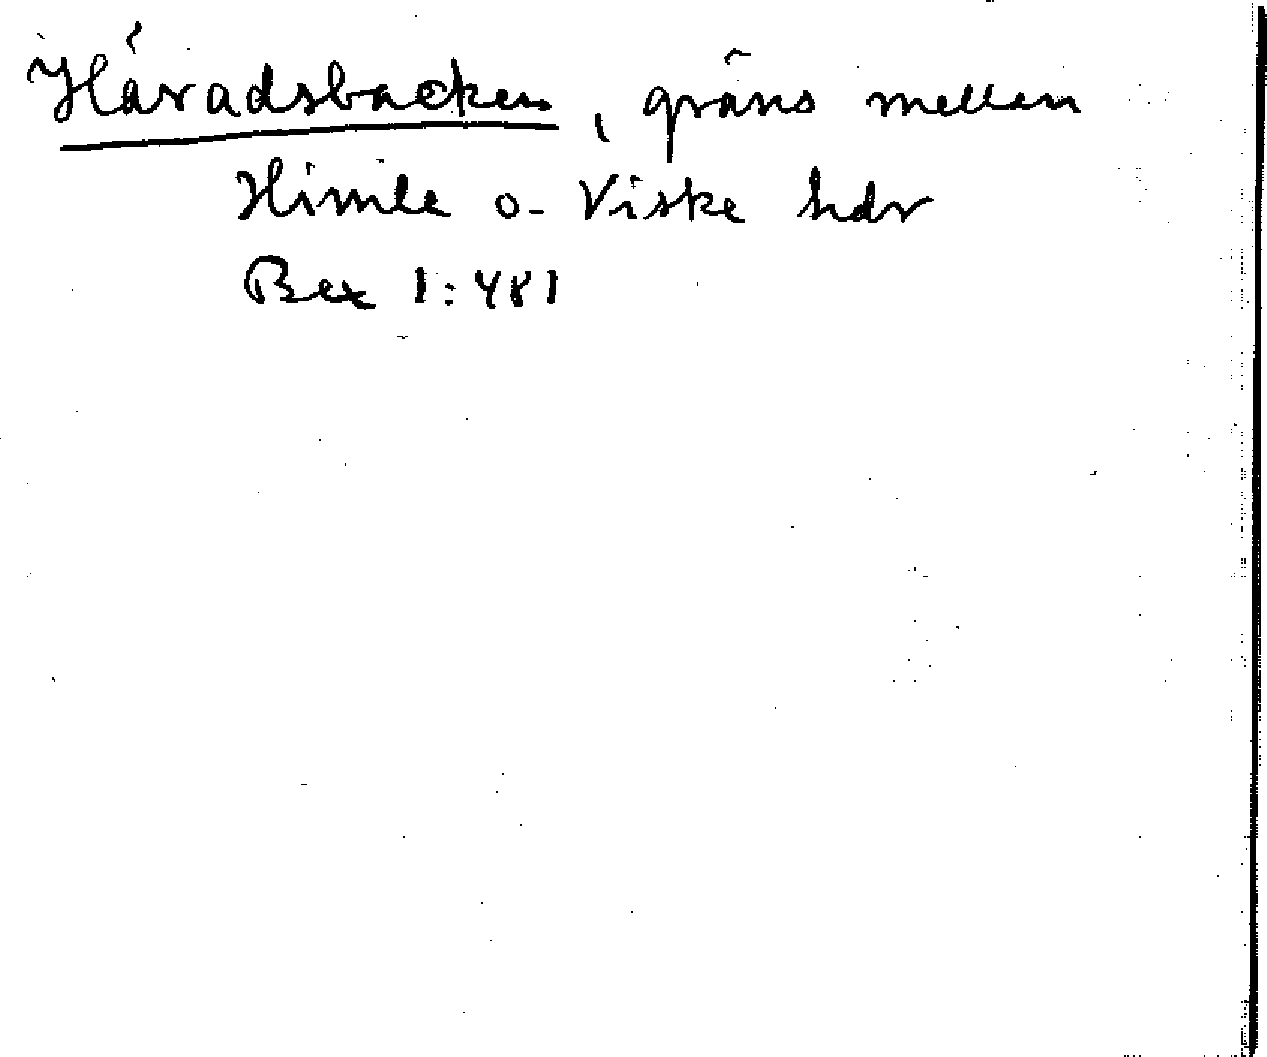 Häradsbacken, gräns mellan
Himle o. Viske hdr
Bex 1:481